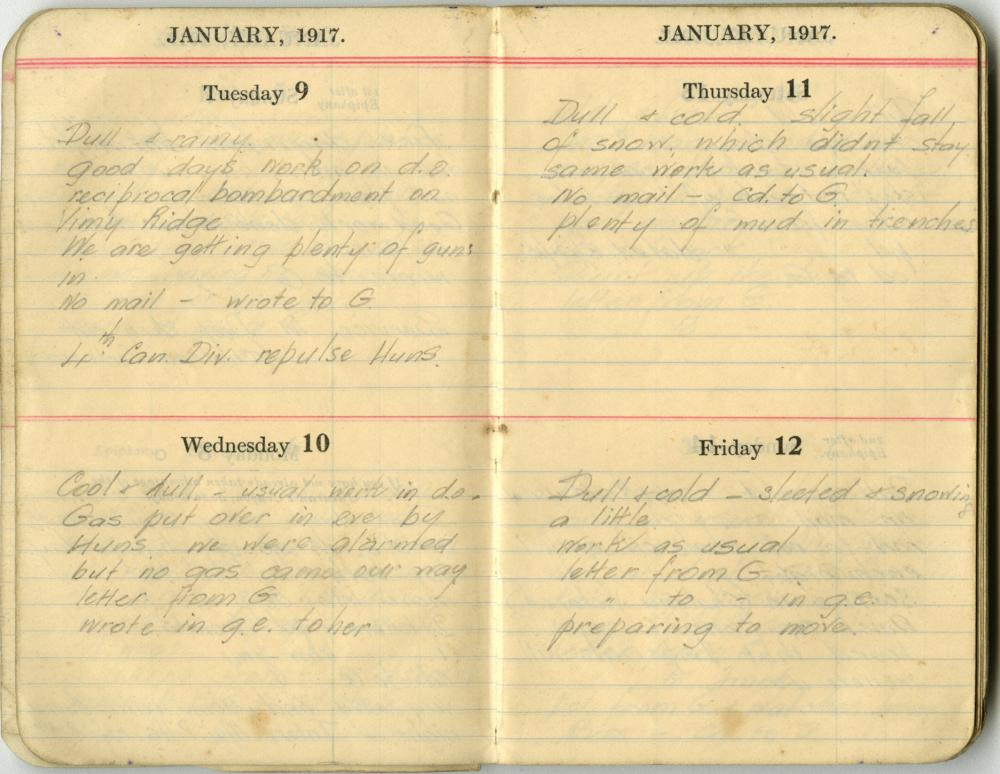 JANUARY, 1917.
Tuesday 9
Dull & rainy.
good day's work on d.o.
reciprocal bombardment on
Vimy Ridge
We are getting plenty of guns
in.
No mail - wrote to G.
4th Can. Div. repulse Huns.
Wednesday 10
Cool & dull - usual work in d.o.
Gas put over in eve by
Huns, we were alarmed
but no gas came our way
letter from G
wrote in g.e. to her
JANUARY, 1917.
Thursday 11
Dull & cold. slight fall
of snow. which didnt stay
same work as usual.
No mail - cd. to G.
plenty of mud in trenches
Friday 12
Dull & cold - sleeted & snowing
a little.
work as usual
letter from G
" to - in g.e.
preparing to move.